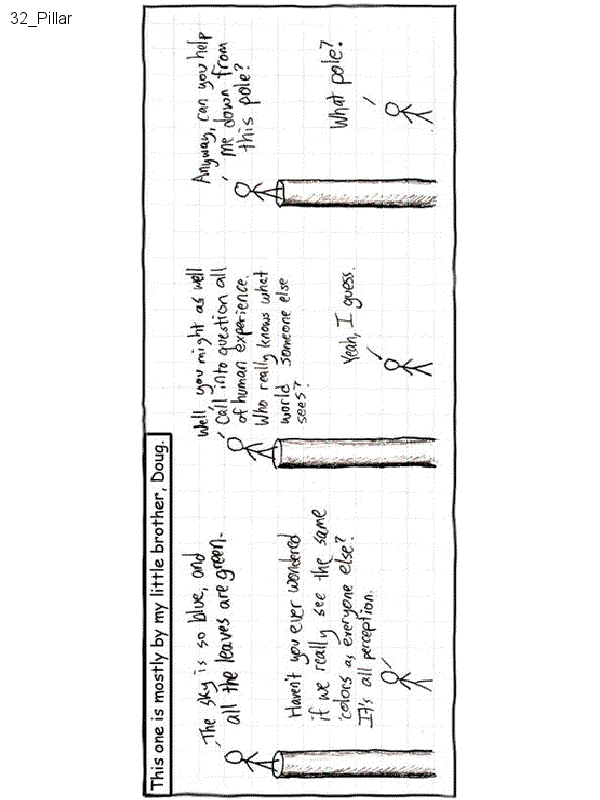 32_Pillar
This one is mostly by my little brother, Doug.
The sky is so blue, and
all the leaves are green.
Haven't you ever wondered
if we really see the same
colors as everyone else?
It's all perception.
Well, you might as well
call into question all
of human experience.
Who really knows what
world someone else
sees?
Yeah, I guess.
Anyway, can you help
me down from
this pole?
What pole?